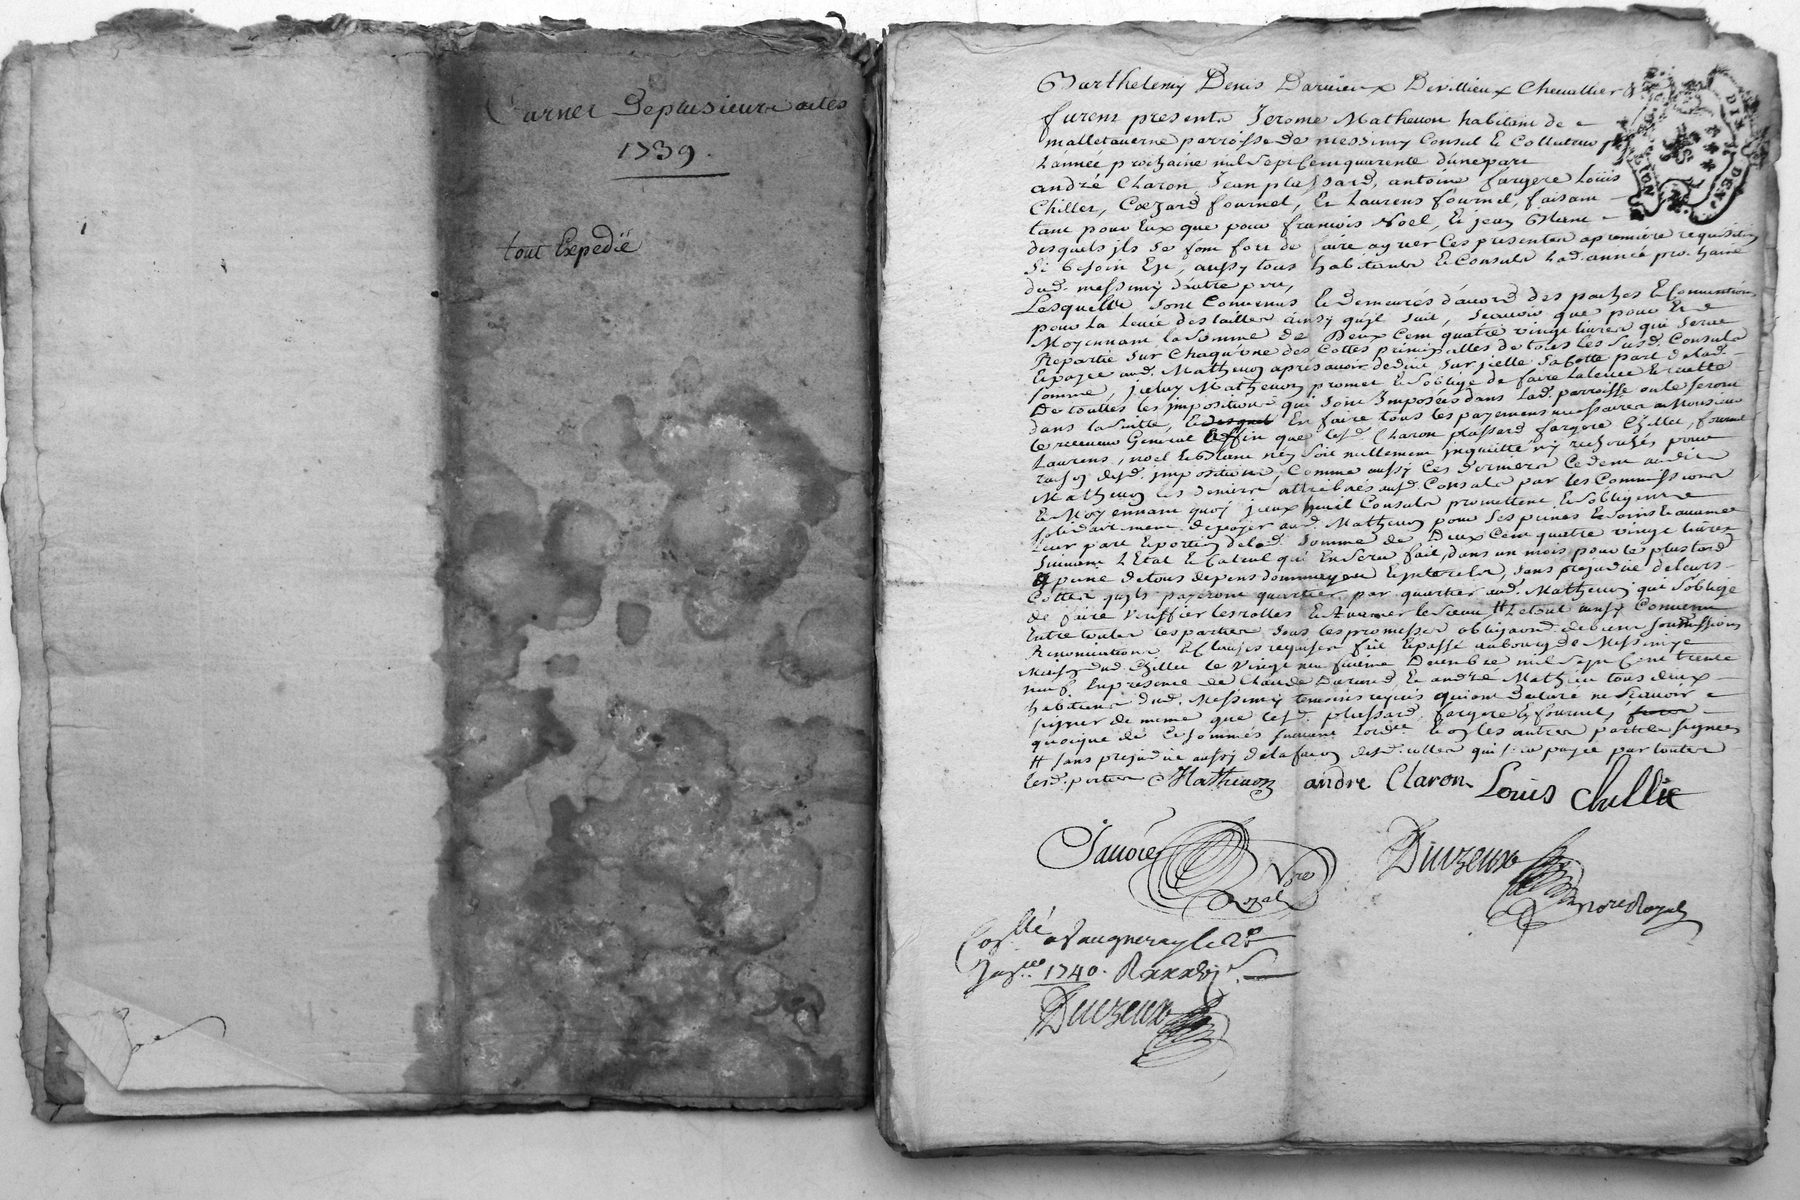 Carnet De plusieurs actes
1739.
tout Expedié
Barthelemy Denis Darnieux Devillieux Chevallier &
furent presents Jerome Mathevon habitant de
malletaverne parroisse de messimy Consul Et Collecteur pr
L'année prochaine mil Sept Cent quarente d'une part
andré Claron Jean plassard, antoine fargere Loüis
Chillet, Cæzard fournel, Et Laurens fournel, faisant
tant pour Eux que pour françois Noel, Et jean Blanc
desquels jls se font fort de faire agreer Ces presentes a premiere requisition
Si besoin Est, aussy tous habitants Et Consuls lad. année prochaine
dud. messimy d'autre part,
Lesquelles sont Convenus Et demeurés d'acord des paches Et Conventions
pour la Levée des tailles ainsy qu'jl suit, scavoir que pour Et
Moyennant la Somme de Deux Cent quatre vingt livres qui sera
Repartie sur Chaqu'une des Cottes principalles de tous les susd. Consuls
Et payée aud. Mathevon apres avoir deduit sur jcelle sa Cotte part de lad.
somme, jceluy Mathevon promet Et s'oblige de faire la levée Et cuette
De touttes les jmpositions qui sont jmposées dans lad. parroisse ou le seront
dans la suitte, En faire tous les payemens necessaires a Monsieur
le receveur General affin que lesd. Claron plassard fargere Chillet, fournel
Laurens, noel Et Blanc n'en soit nullement jnquiettés ny recherchés pour
raison desd. jmpositions, Comme aussy Ces derniers Cedent audit
Mathevon les deniers attribués ausd. Consuls par les Commissions
Et Moyennant quoy jceux huit Consuls promettent Et s'obligent
solidairement de payer aud. Mathevon pour ses peines Et soins Et avances
Leur part Et portion de lad. somme de Deux Cent quatre vingt livres
suivant L'Etat Et Calcul qui En sera fait dans un mois pour le plus tard
a peine de tous depens dommages Et jnterets, sans prejudice de leurs
Cottes qu'jls payeront quartier par quartier aud. Mathevon qui s'oblige
de faire veriffier les rolles Et # Le tout ainsy Convenu
Entre toutes les parties sous les promesses obligaons de biens soumissions
Renonciations Et Clauses requises fait Et passé au bourg de Messimy
Maison dud. Chillet le vingt neufvieme Decembre mil Sept Cent trente
neuf. En presence de Claude Durand Et andré Mathieu tous deux
habitans dud. Messimy temoins requis qui ont declaré ne scavoir
signer de meme que lesd. plassard, fargere Et fournel,
quoique de Ce sommés suivant l'ordce Et on les autres parties signées
# sans prejudice aussy de la façon desd. rolles qui sera payée par toutes
lesd. parties Mathevon andre Claron Louis Chillie
Nre
Royal
Duvzeux notre Royal
Collé a Vaugneray le 2e
1740.
Duvzeux